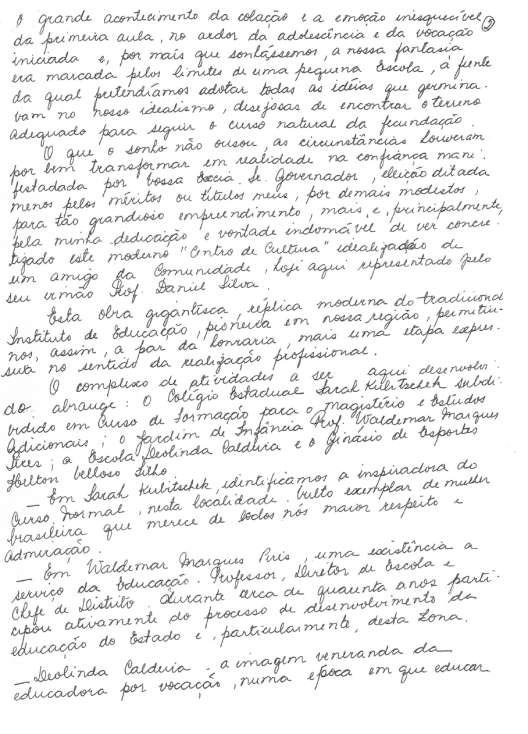 O grande acontecimento da colação e a emoção inesquecível
da primeira aula, no ardor da adolescência e da vocação ②
iniciada e, por mais que sonhássemos, a nossa fantasia
era marcada pelos limites de uma pequena Escola, à frente
da qual pretendíamos adotar todas as idéias que germina-
vam no nosso idealismo, desejosas de encontrar o terreno
adequado para seguir o curso natural da fecundação.
O que o sonho não ousou, as circunstâncias houveram
por bem transformar em realidade na confiança mani-
festadada por Vossa Excia. Sr. Governador, eleição ditada
menos pelos méritos ou títulos meus, por demais modestos,
para tão grandioso empreendimento, mais, e, principalmente,
pela minha dedicação e vontade indomável de ver concre-
tizado este moderno "Centro de Cultura" idealizado de
um amigo da Comunidade, hoje aqui representado pelo
seu irmão Prof. Daniel Silva.
Esta obra gigantisca, réplica moderna do tradicional
Instituto de Educação, pioneira em nossa região, permitiu-
nos, assim, a par da honraria, mais uma etapa expres-
siva no sentido da realização profissional.
O complexo de atividades a ser aqui desenvolvi-
do abrange: O Colégio Estadual Sarah Kubitschek subdi-
vidido em Curso de Formação para o magistério e Estudos
Adicionais; o Jardim de Infância Prof. Waldemar Marques
Pires; a Escola Deolinda Caldeira e o Ginásio de Esportes
Hilton Velloso Filho.
— Em Sarah Kubitschek, identificamos a inspiradora do
Curso Normal, nesta localidade. Vulto exemplar de mulher
brasileira que merece de todos nós maior respeito e
admiração.
— Em Waldemar Marques Piris, uma existência a
serviço da Educação. Professor, Diretor de Escola e
Chefe de Distrito. Durante cerca de quarenta anos parti-
cipou ativamente do processo de desenvolvimento da
educação do Estado e, particularmente, desta Zona.
— Deolinda Caldeira - a imagem veneranda da
educadora por vocação, numa época em que educar